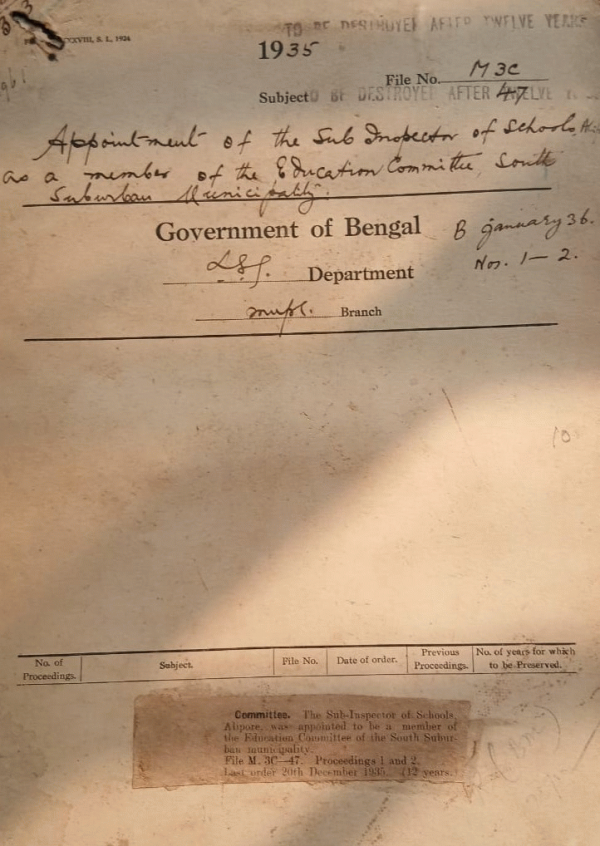 TO BE DESTROYED AFTER TWELVE YEARS
XXVIII, S. L. 1924
1935
File No. M 3C
47
Subject
TO BE DESTROYED AFTER TWELVE
Appointment of the Sub Inspector of Schools,
as a member of the Education Committee, South
Suburban Municipality.
Government of Bengal
B January 36.
Nos. 1 — 2.
L.S.G. Department
Branch
10
No. of Proceedings.
Subject.
File No.
Date of order.
Previous Proceedings.
No. of years for which to be Preserved.
Committee. The Sub-Inspector of Schools,
Alipore, was appointed to be a member of
the Education Committee of the South Subur-
ban municipality.
File M. 3C—47. Proceedings 1 and 2.
Last order 20th December 1935. (12 years.